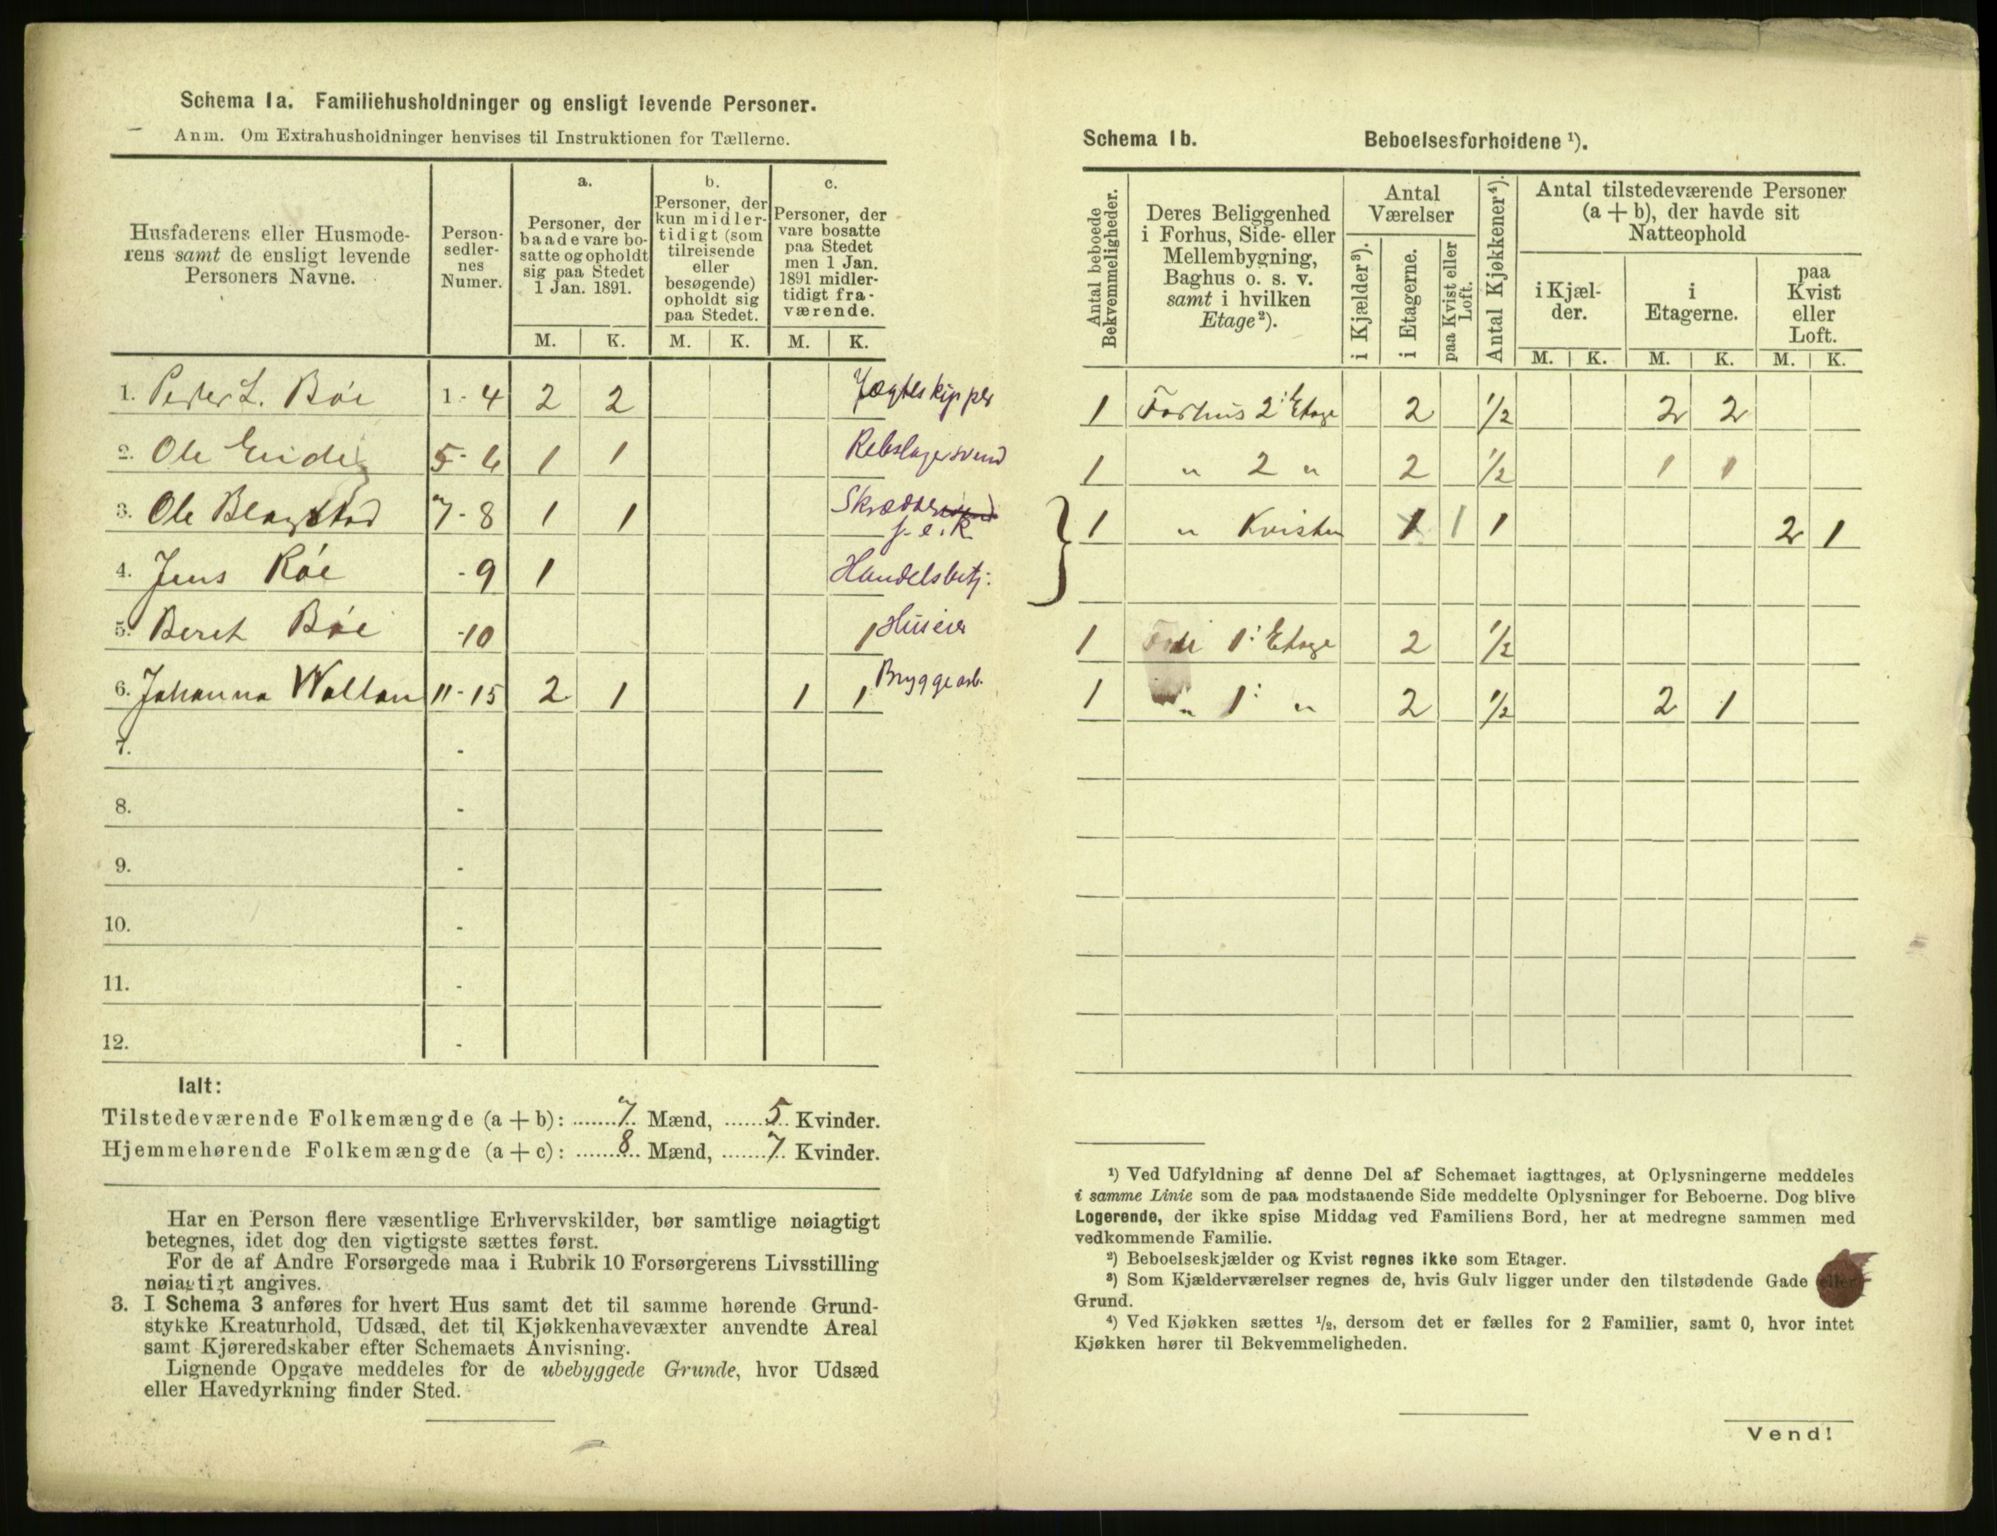 Schema 1a. Familiehusholdninger og ensligt levende Personer.
Anm. Om Extrahusholdninger henvises til Instruktionen for Tællerne.
Husfaderens eller Husmode-
rens samt de ensligt levende
Personers Navne.
Person-
sedler-
nes
Numer.
a.
Personer, der
baade vare bo-
satte og opholdt
sig paa Stedet
1 Jan. 1891.
b.
Personer, der
kun midler-
tidigt (som
tilreisende
eller
besøgende)
opholdt sig
paa Stedet.
c.
Personer, der
vare bosatte
paa Stedet
men 1 Jan.
1891 midler-
tidigt fra-
værende.
M. K. M. K. M. K.
1. Peder L. Bøe 1 - 4 2 2 Jægteskipper
2. Ole 5 - 6 1 1 Rebslagersvend
3. Ole Blagstad 7 - 8 1 1 Skrædder
f. e. R.
4. Jens Røe - 9 1 Handelsbetj:
5. Beret Bøe - 10 1 Huseier
6. Johanna Wollan 11 - 15 2 1 1 1 Bryggearb.
7. -
8. -
9. -
10. -
11. -
12. -
Ialt:
Tilstedeværende Folkemængde (a + b): 7 Mænd, 5 Kvinder.
Hjemmehørende Folkemængde (a + c): 8 Mænd, 7 Kvinder.
Har en Person flere væsentlige Erhvervskilder, bør samtlige nøiagtigt
betegnes, idet dog den vigtigste sættes først.
For de af Andre Forsørgede maa i Rubrik 10 Forsørgerens Livsstilling
nøiagtigt angives.
3. I Schema 3 anføres for hvert Hus samt det til samme hørende Grund-
stykke Kreaturhold, Udsæd, det til Kjøkkenhavevæxter anvendte Areal
samt Kjøreredskaber efter Schemaets Anvisning.
Lignende Opgave meddeles for de ubebyggede Grunde, hvor Udsæd
eller Havedyrkning finder Sted.
Schema 1b. Beboelsesforholdene ¹).
Antal beboede
Bekvemmeligheder.
Deres Beliggenhed
i Forhus, Side- eller
Mellembygning,
Baghus o. s. v.
samt i hvilken
Etage ²).
Antal
Værelser
i Kjælder ³).
i Etagerne.
paa Kvist eller
Loft.
Antal Kjøkkener ⁴).
Antal tilstedeværende Personer
(a + b), der havde sit
Natteophold
i Kjæl-
der.
i
Etagerne.
paa
Kvist
eller
Loft.
M. K. M. K. M. K.
1 Forhus 2: Etage 2 1/2 2 2
1 " 2 " 2 1/2 1 1
1 " Kvisten 1 1 1 2 1
1 1: Etage 2 1/2
1 " 1: " 2 1/2 2 1
¹) Ved Udfyldning af denne Del af Schemaet iagttages, at Oplysningerne meddeles
i samme Linie som de paa modstaaende Side meddelte Oplysninger for Beboerne. Dog blive
Logerende, der ikke spise Middag ved Familiens Bord, her at medregne sammen med
vedkommende Familie.
²) Beboelseskjælder og Kvist regnes ikke som Etager.
³) Som Kjælderværelser regnes de, hvis Gulv ligger under den tilstødende Gade eller
Grund.
⁴) Ved Kjøkken sættes ½, dersom det er fælles for 2 Familier, samt 0, hvor intet
Kjøkken hører til Bekvemmeligheden.
Vend!